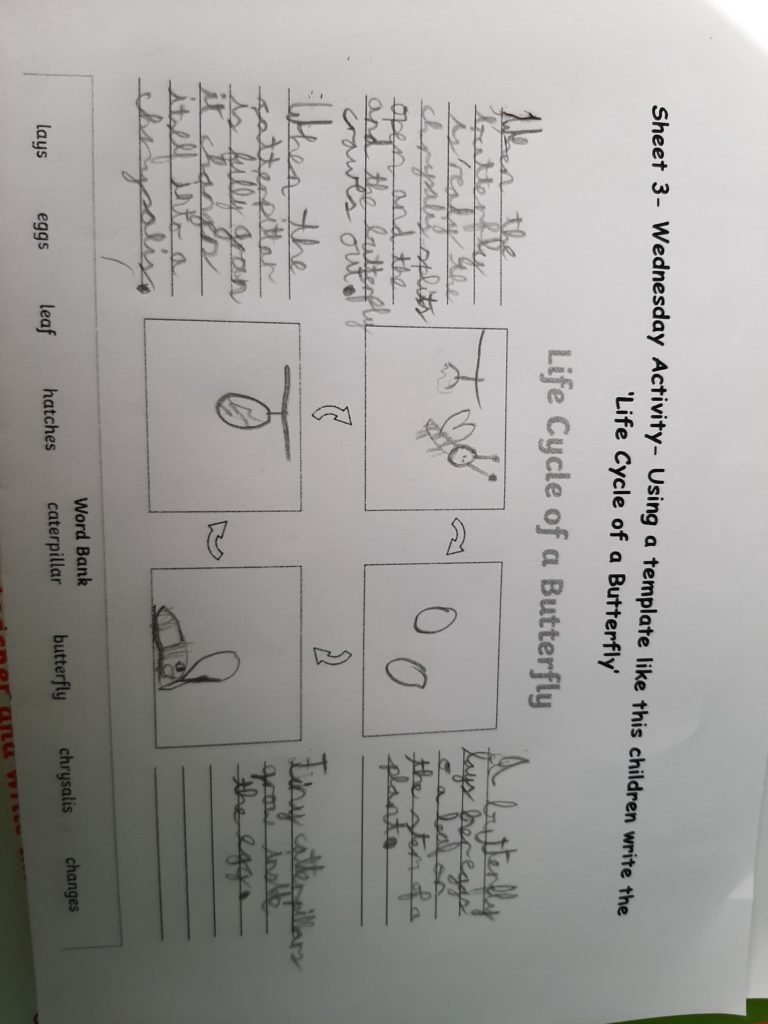 Sheet 3- Wednesday Activity- Using a template like this children write the
'Life Cycle of a Butterfly'
Life Cycle of a Butterfly
When the
butterfly
is ready the
chrysalis splits
open and the
and the butterfly
crawls out.
A butterfly
lays her eggs
a leaf or
the stem of a
plant.
When the
catterpillar
is fully
it
itself into a
chrysalis.
Tiny catterpillars
grow
the egg.
Word Bank
lays eggs leaf hatches caterpillar butterfly chrysalis changes